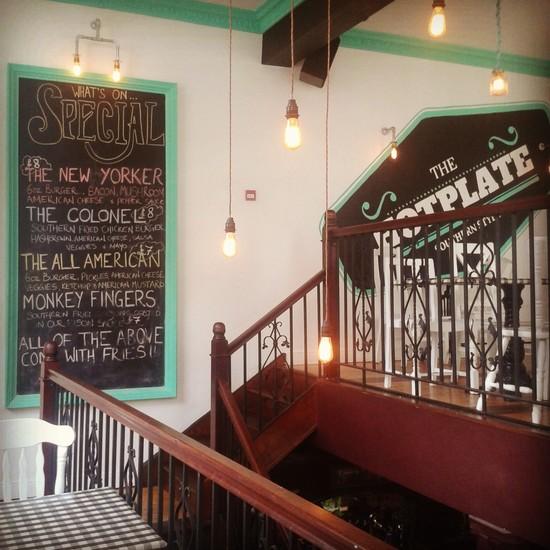 WHAT'S ON...
SPECIAL
£8
THE NEW YORKER
6oz BURGER, BACON, MUSHROOM
AMERICAN CHEESE & PEPPER SAUCE
THE COLONEL £8
SOUTHERN FRIED CHICKEN BURGER,
HASHBROWN, AMERICAN CHEESE, SALSA
VEGGIES & MAYO
£7
THE ALL AMERICAN
6oz BURGER, PICKLES, AMERICAN CHEESE,
VEGGIES, KETCHUP & AMERICAN MUSTARD
MONKEY FINGERS
SOUTHERN FRIED
IN OUR SAUCE £7
ALL OF THE ABOVE
COME WITH FRIES!!
THE
HOTPLATE